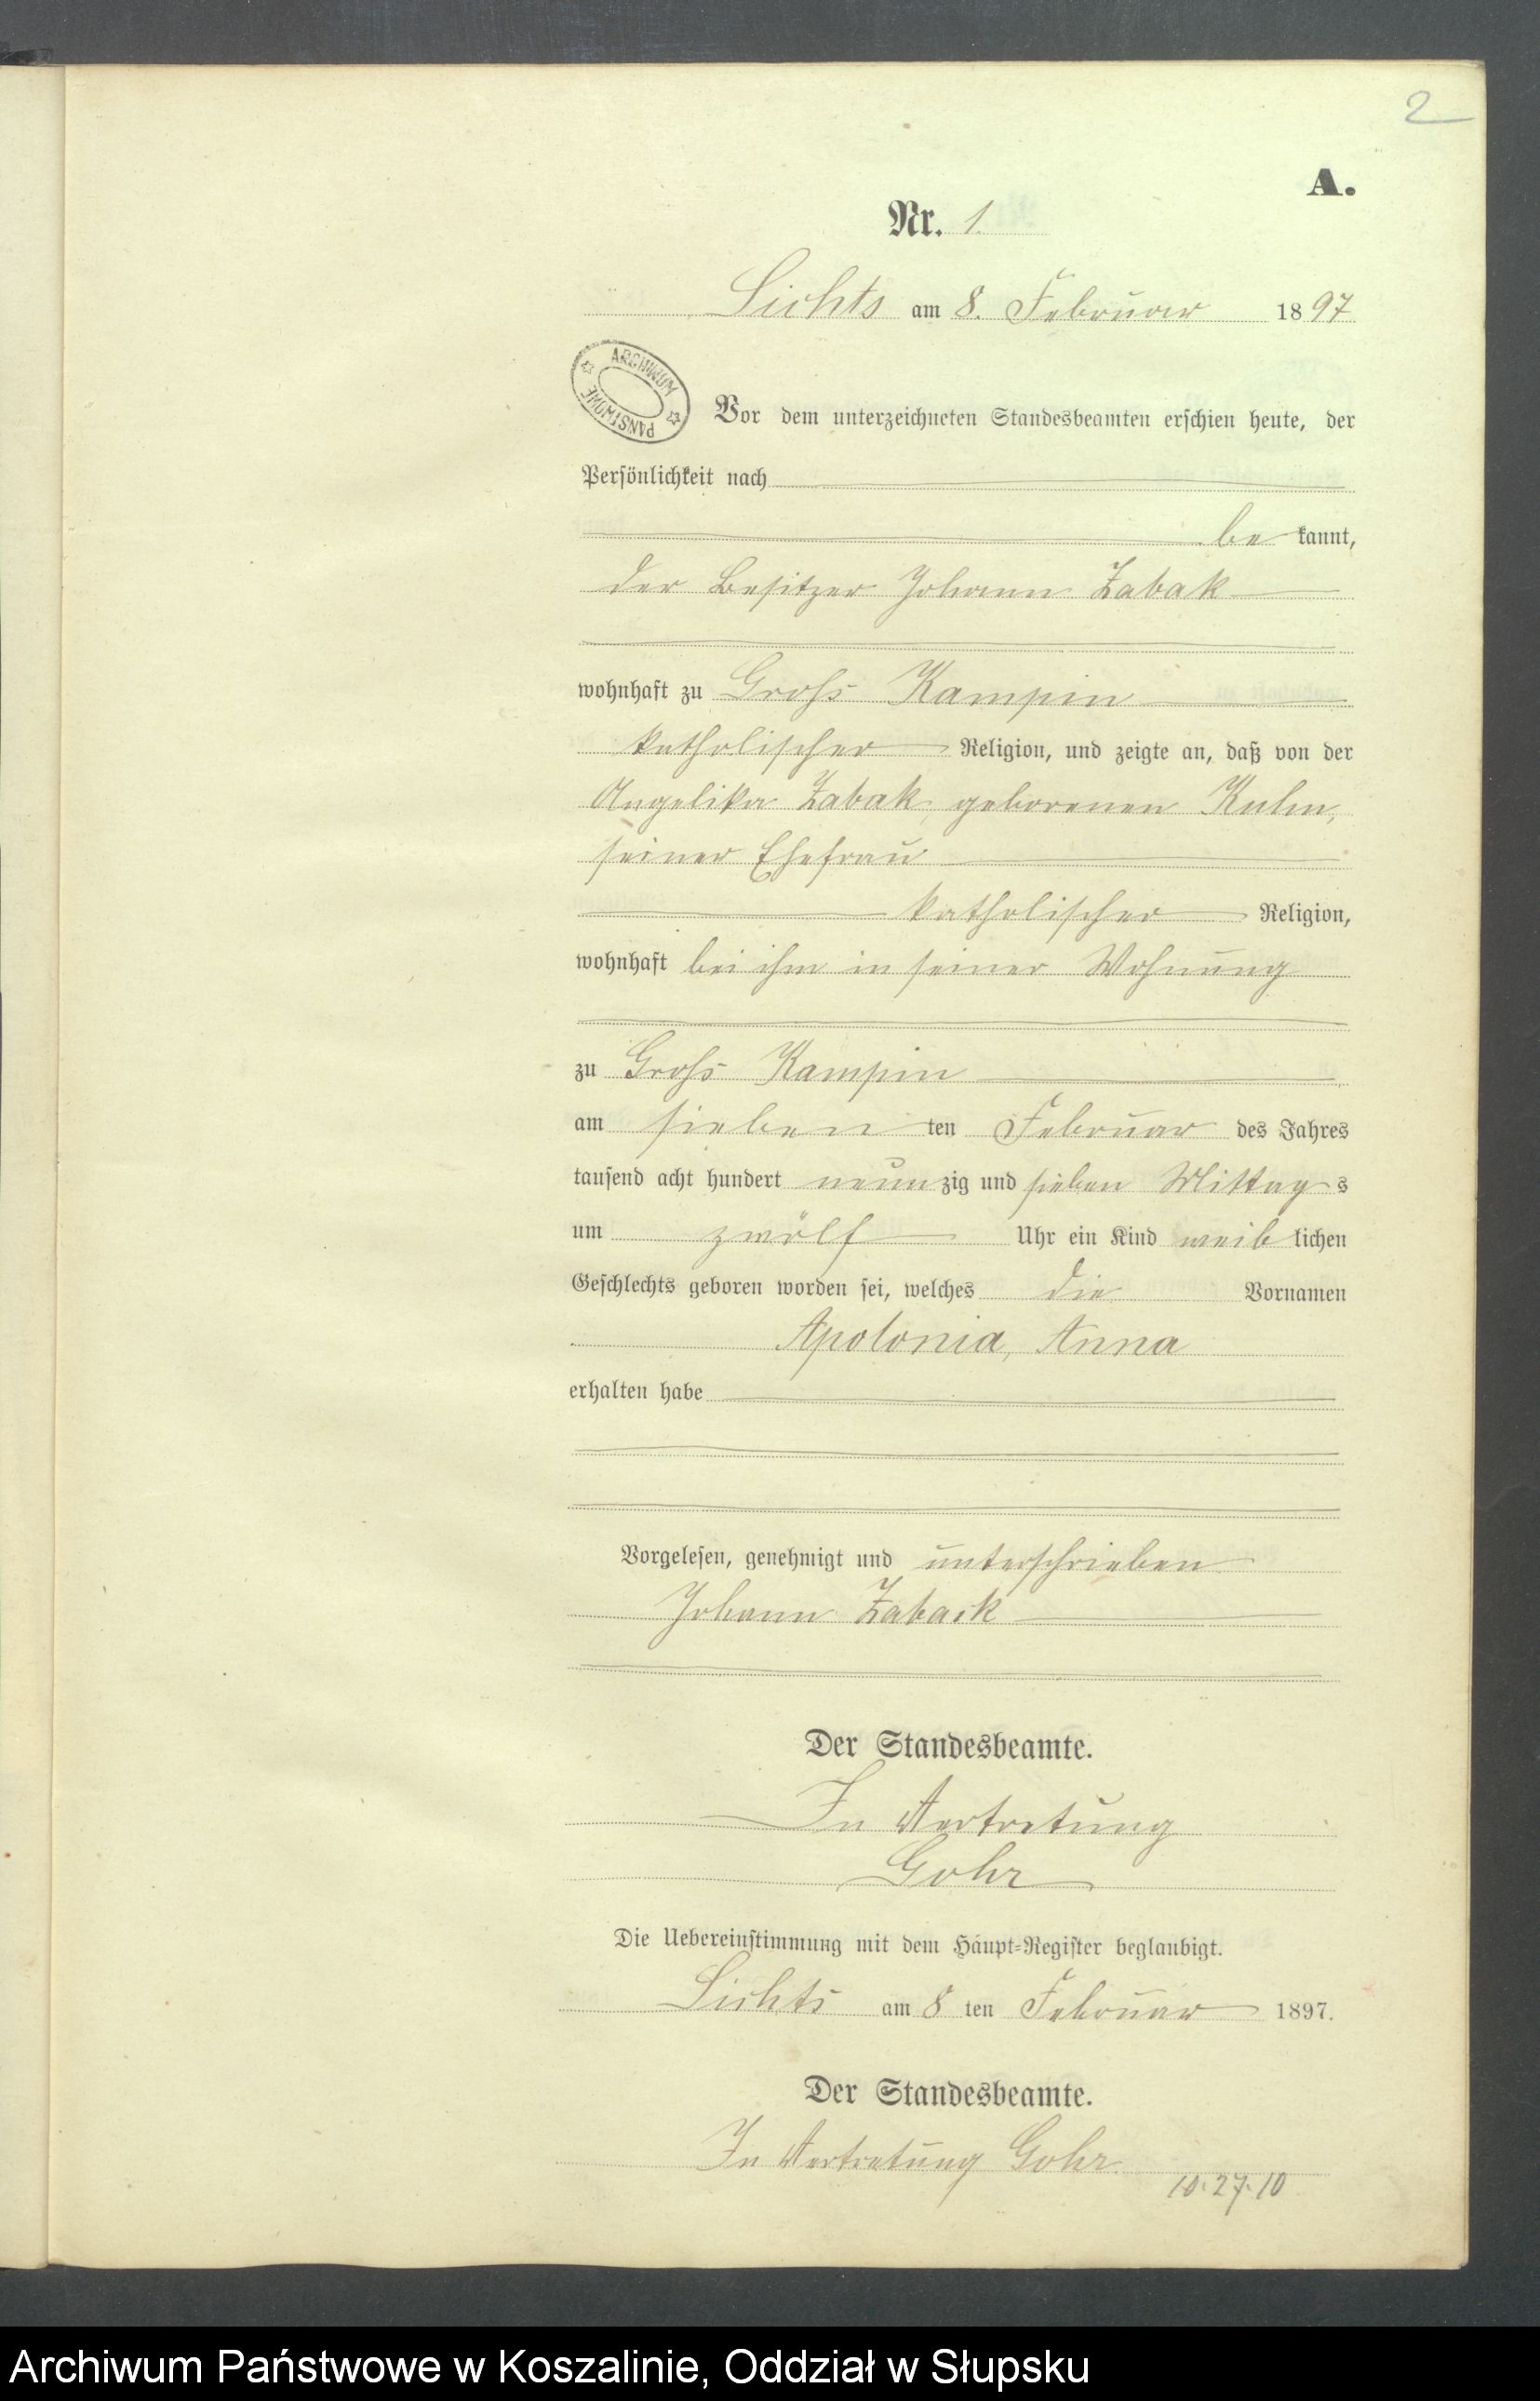 2
A.
Nr. 1.
Lichts am 8. Februar 1897
ARCHIWUM PAŃSTWOWE
Vor dem unterzeichneten Standesbeamten erschien heute, der
Persönlichkeit nach
be kannt,
der Besitzer Johann Zabak
wohnhaft zu Groß Kampin
katholischer Religion, und zeigte an, daß von der
Angelika Zabak, geborenen Kulm,
seiner Ehefrau
katholischer Religion,
wohnhaft bei ihm in seiner Wohnung
zu Groß Kampin
am sieben ten Februar des Jahres
tausend acht hundert neun zig und sieben Mittag s
um zwölf Uhr ein Kind weib lichen
Geschlechts geboren worden sei, welches die Vornamen
Apolonia, Anna
erhalten habe
Vorgelesen, genehmigt und unterschrieben
Johann Zaback
Der Standesbeamte.
In Vertretung
Gohr
Die Uebereinstimmung mit dem Haupt-Register beglaubigt.
Lichts am 8 ten Februar 1897.
Der Standesbeamte.
In Vertretung Gohr.
10.27.10
Archiwum Państwowe w Koszalinie, Oddział w Słupsku